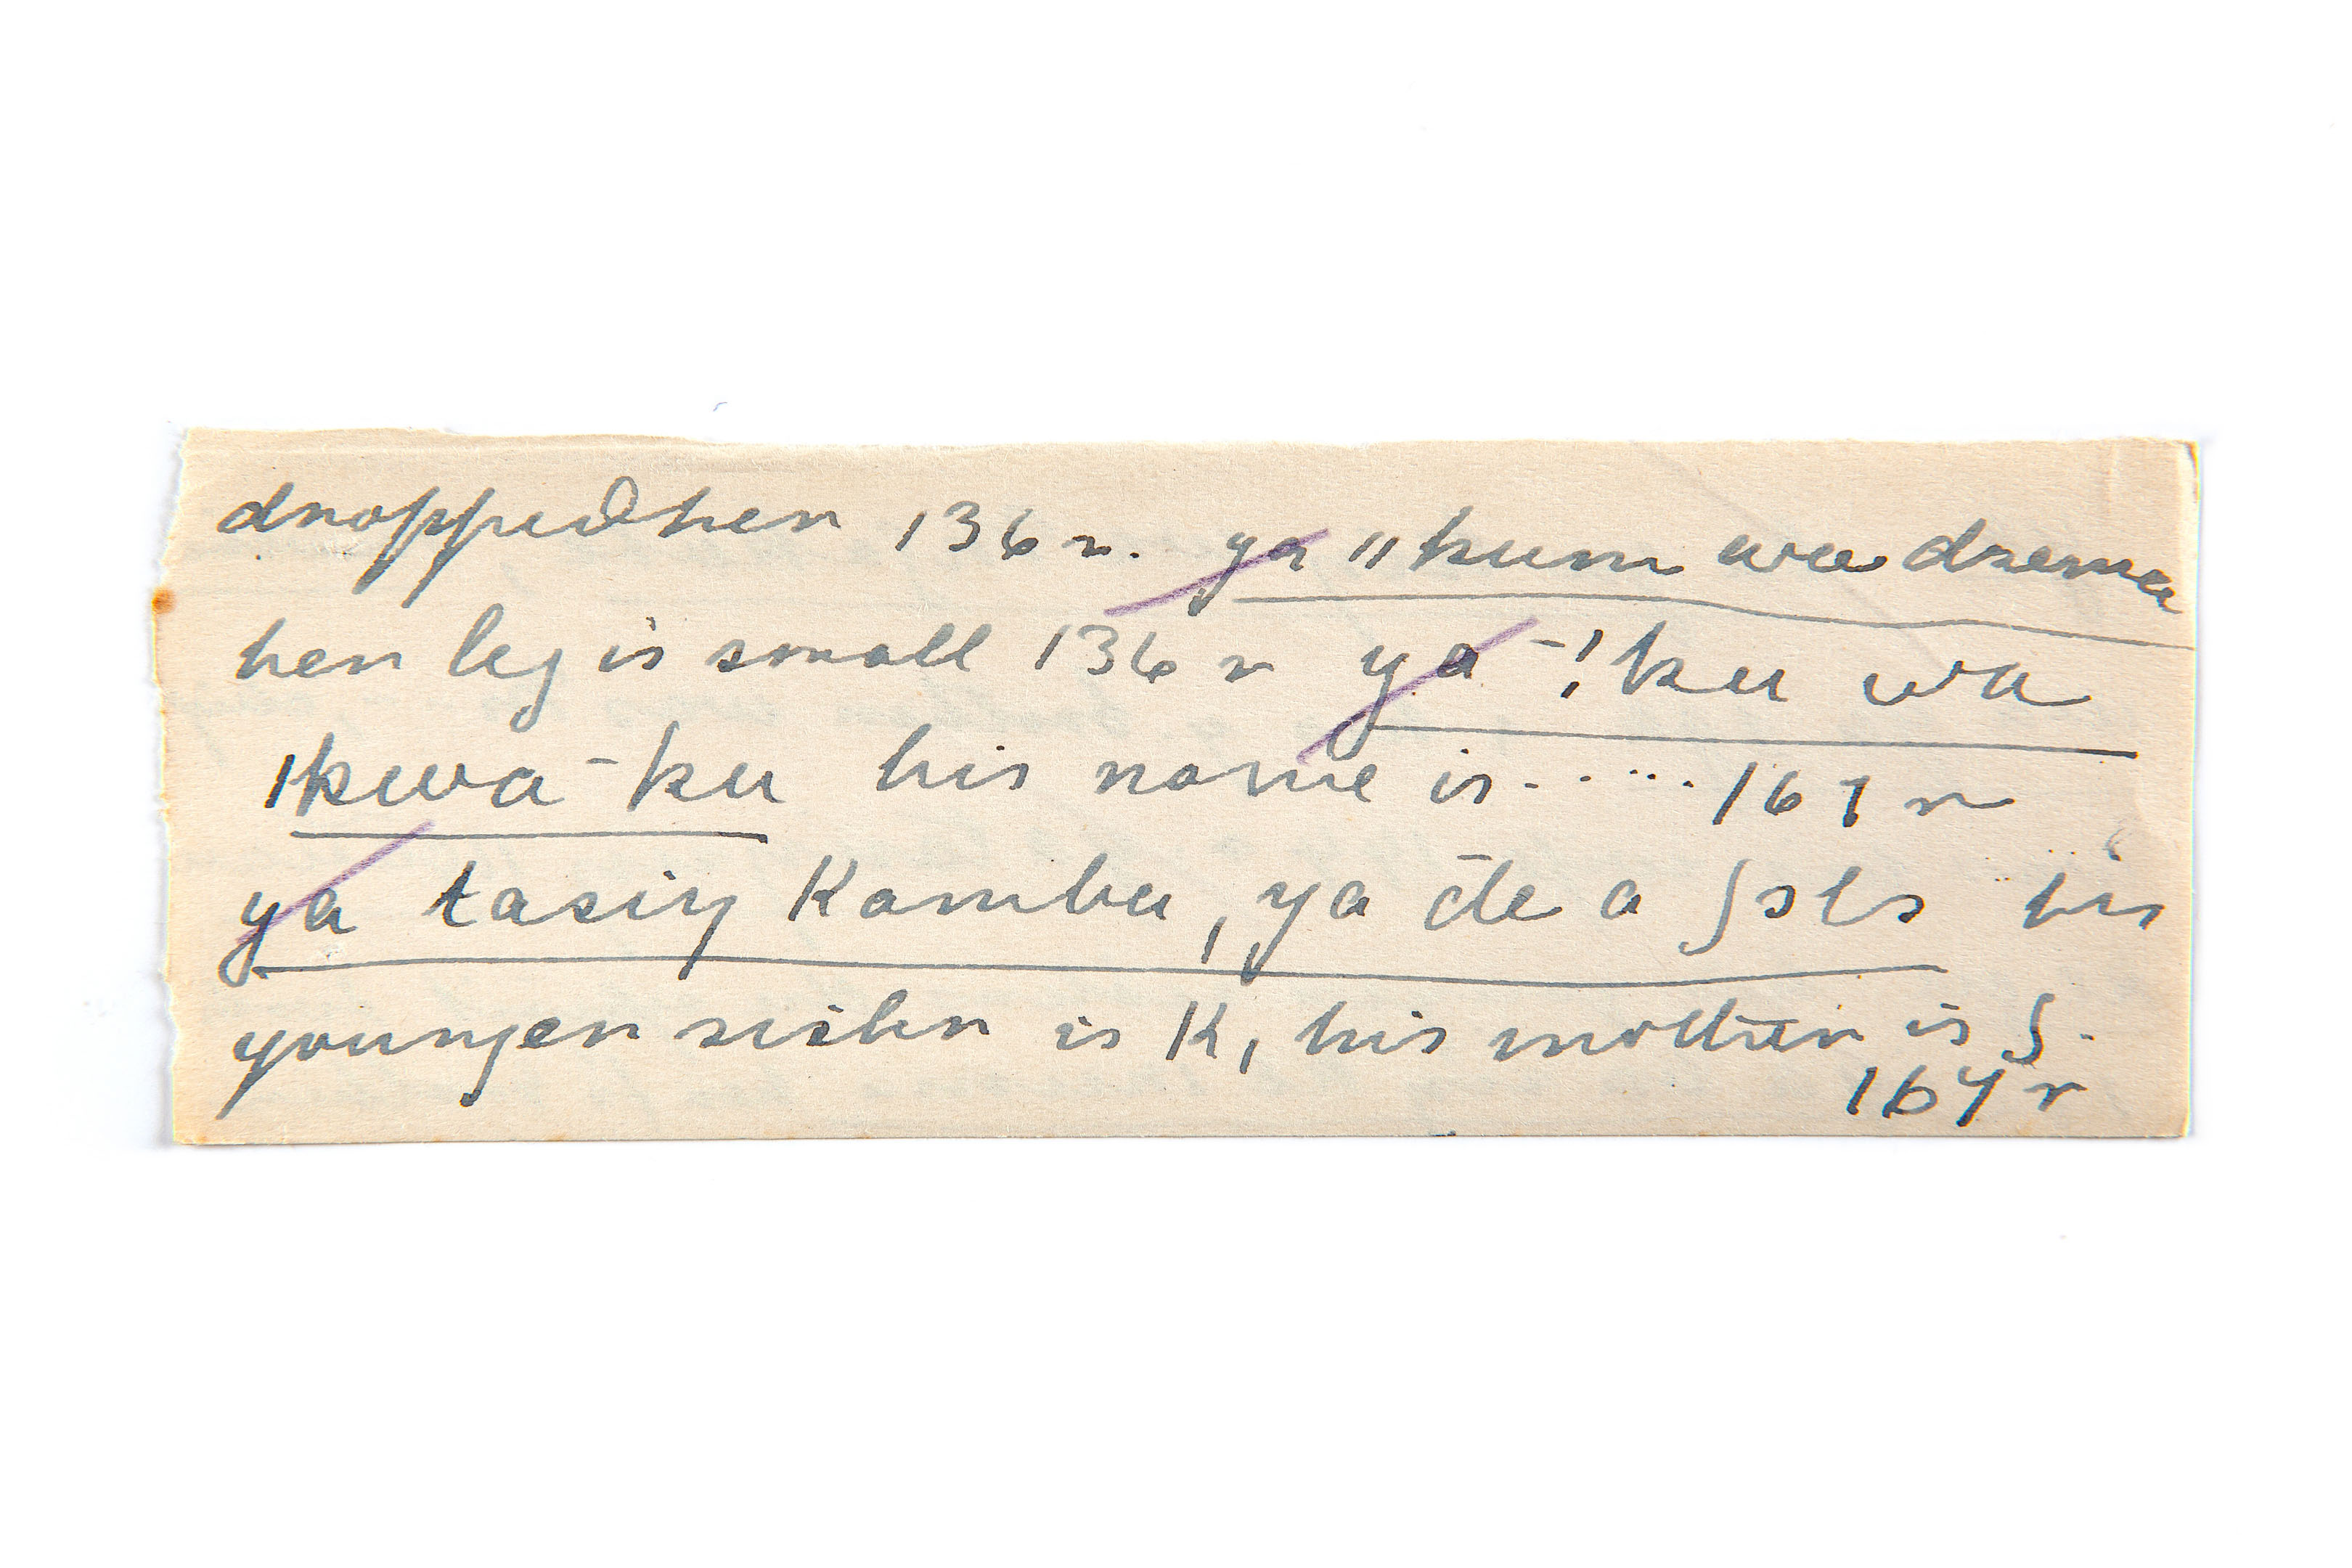 dropped her 136 r. ya ǁkum wa dzema
her leg is small 136 r ya -!ku wa
ǀkwa-ku his name is..... 167 r
ya tasiŋ Kambu, ya de a ʃsls his
younger sister is K, his mother is ʃ.
167 r